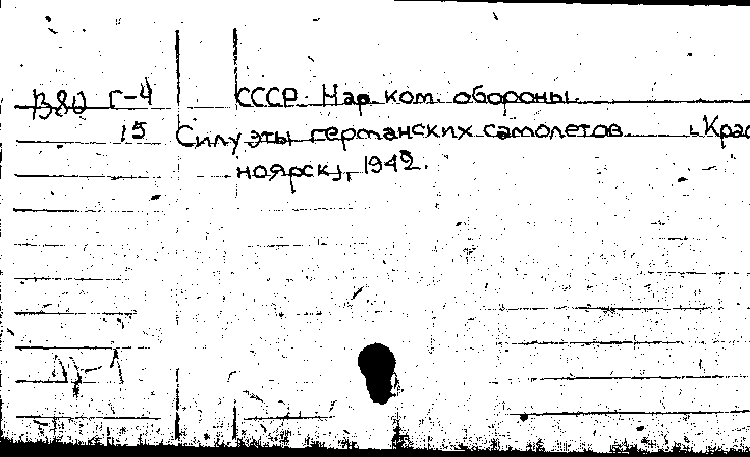 В80 Г-4 СССР. Нар. ком. обороны.
15 Силуэты германских самолетов. [Крас
ноярск], 1942.